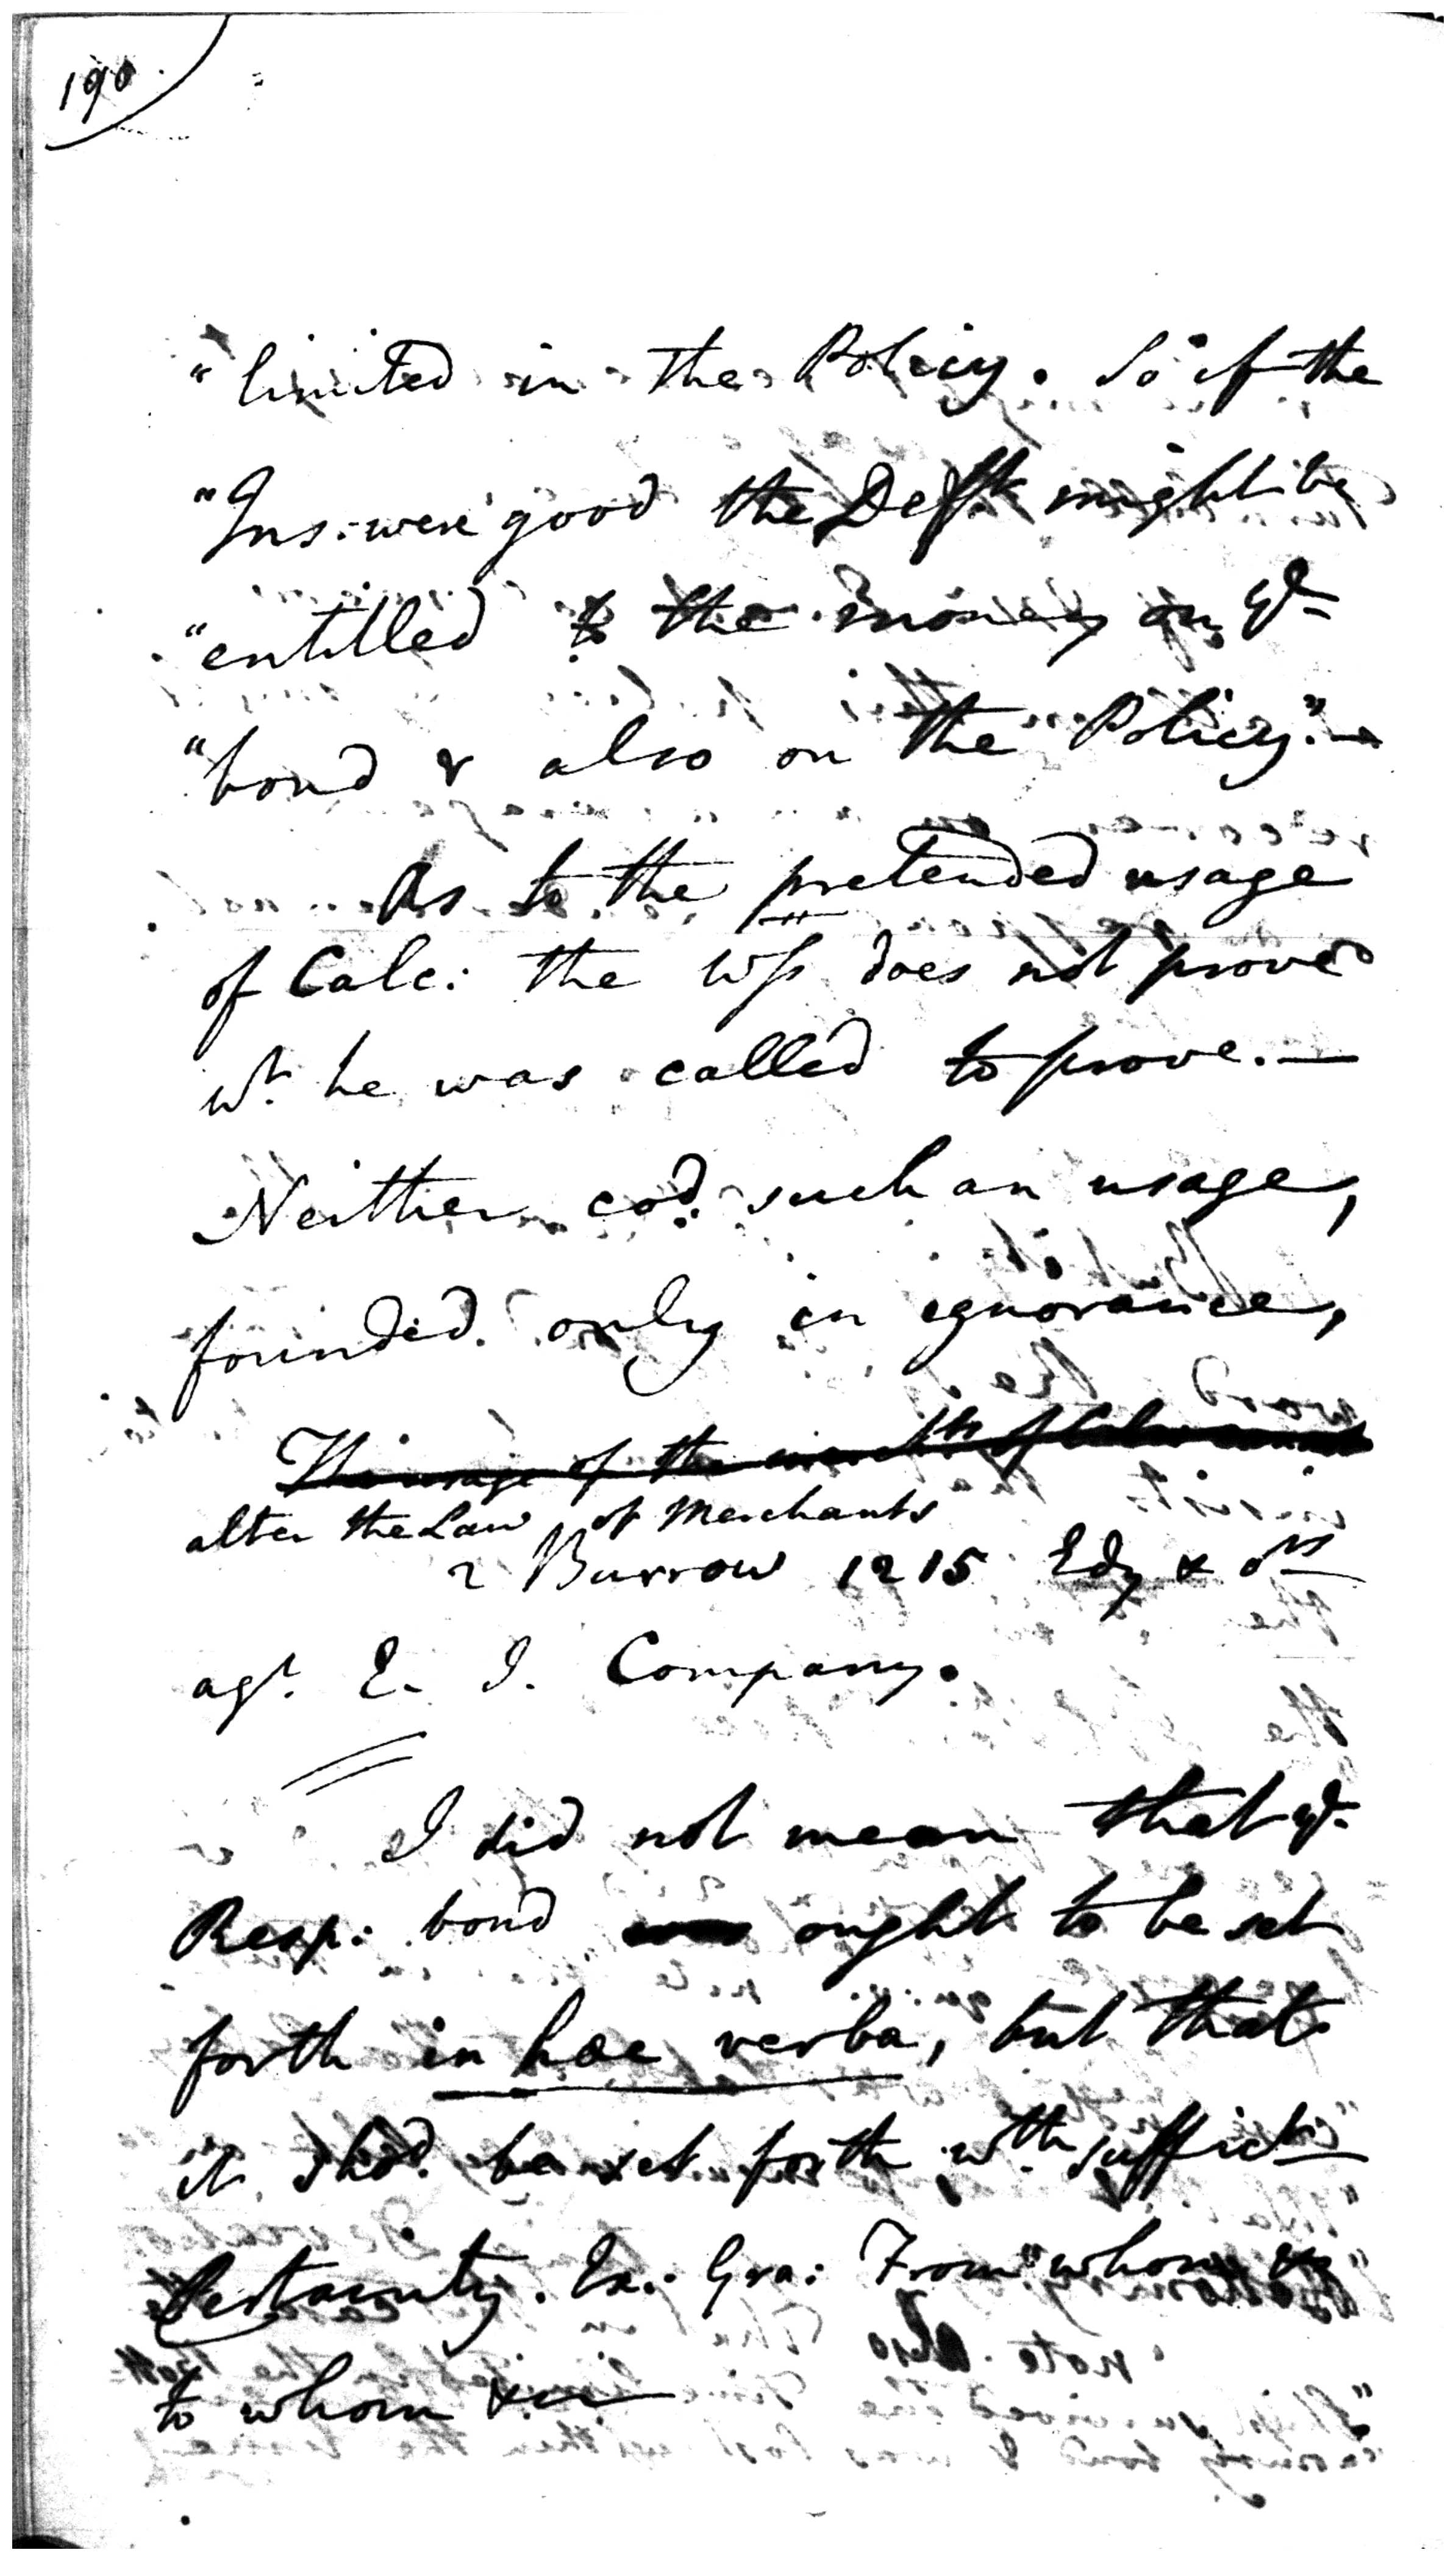 190.
"limited in the Policy. So if the
"Ins: were good the Deft might be
"entitled to the money on ye
"bond & also on the Policy." —
As to the pretended usage
of Calc: the Wss does not prove
wt. he was called to prove. —
Neither cod. such an usage,
founded only in ignorance,
The usage of the
alter the Law of Merchants
2 Burrow 1215 Edy & ors
agt. E. I. Company.
I did not mean that ye
Resp: bond was ought to be set
forth in hæc verba, but that
it shod. be set forth wth. suffict
Certainty. Ex: Gra: From whom &
to whom &c